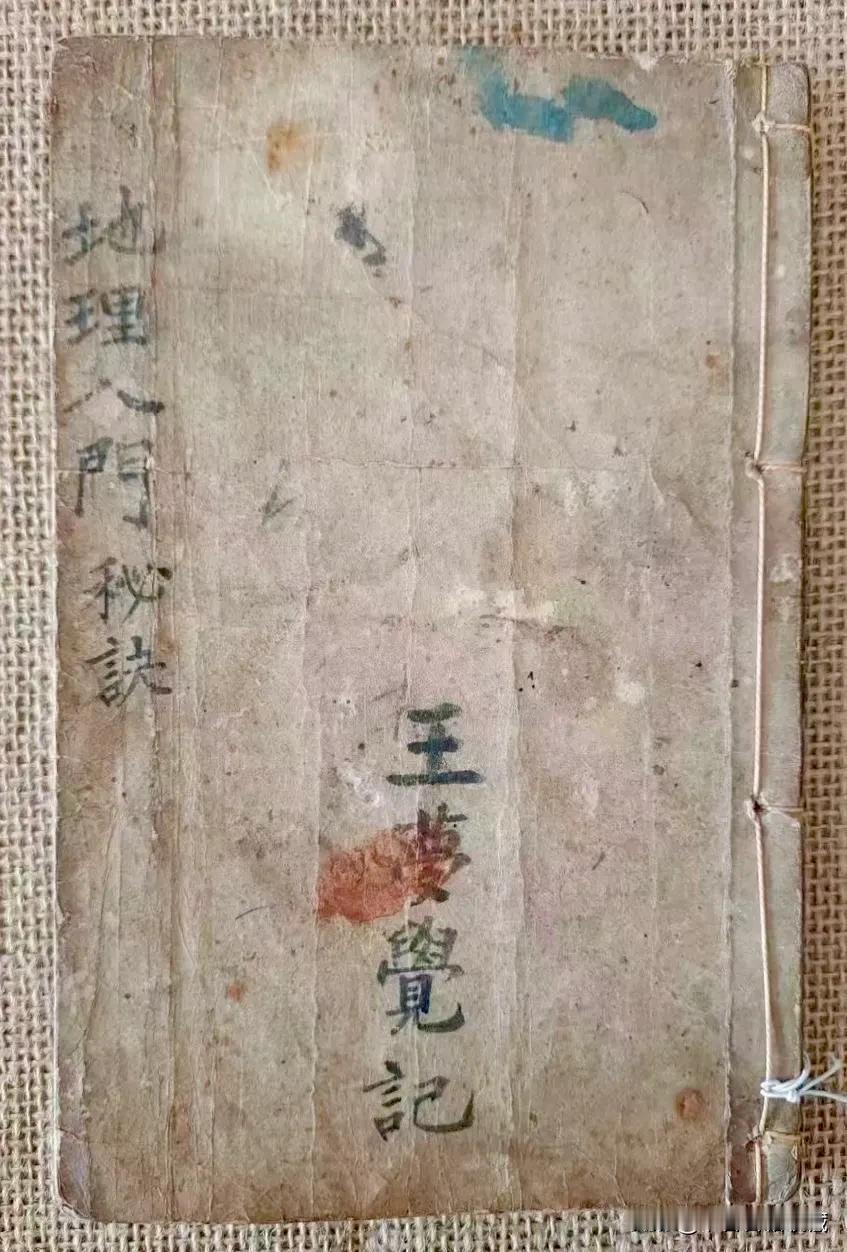 地理入門秘訣
王夢覺記